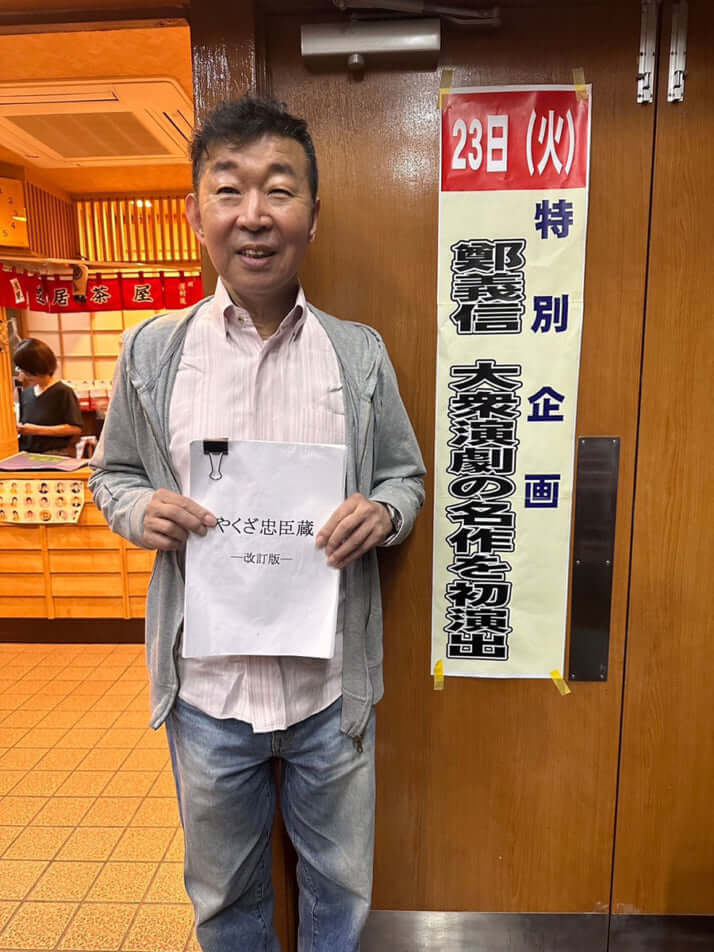 23日（火）
特別企画
鄭義信 大衆演劇の名作を初演出
芝居茶屋
やくざ忠臣蔵
―改訂版―